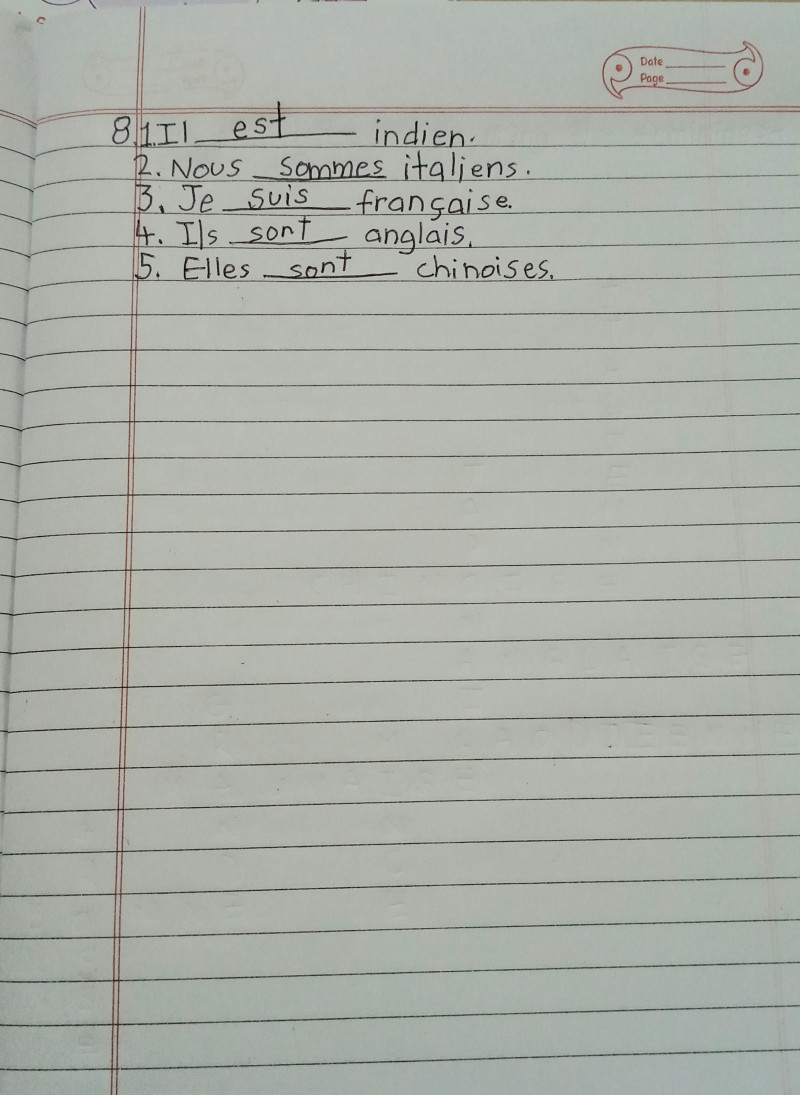 Date
Page
8. 1. Il est indien.
2. Nous sommes italiens.
3. Je suis française.
4. Ils sont anglais.
5. Elles sont chinoises.